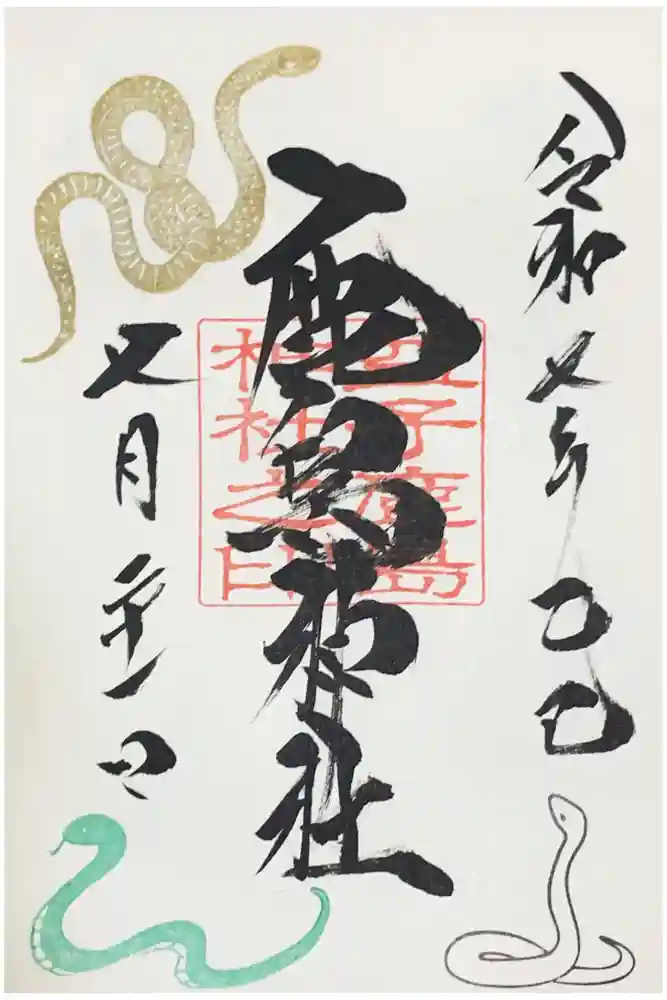 令和七年乙巳
鹿島神社
子鹿島
社之印
七月二十一日